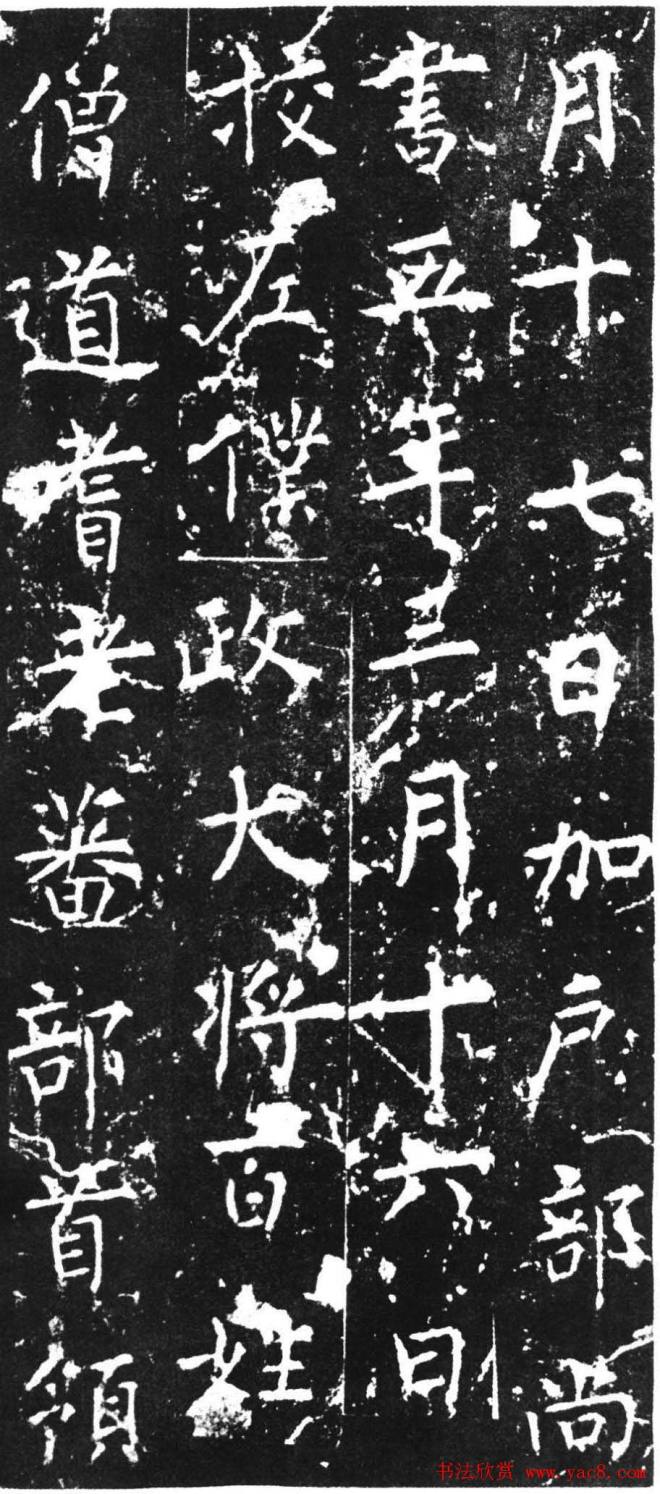 月十七日加户部尚
書五年三月十六日
校左僕政大将百姓
僧道耆老蕃部首領
书法欣赏 www.yac8.com